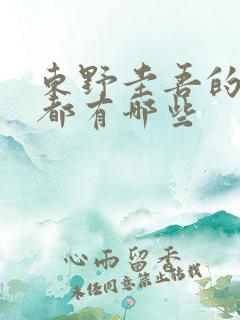 东野圭吾的
都有哪些
心雨留香
未经同意禁止转载